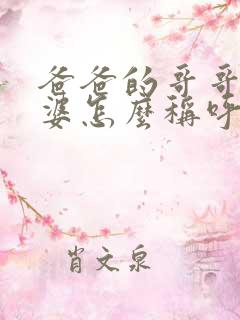 爸爸的哥哥
婆怎麼稱呼
肖文泉